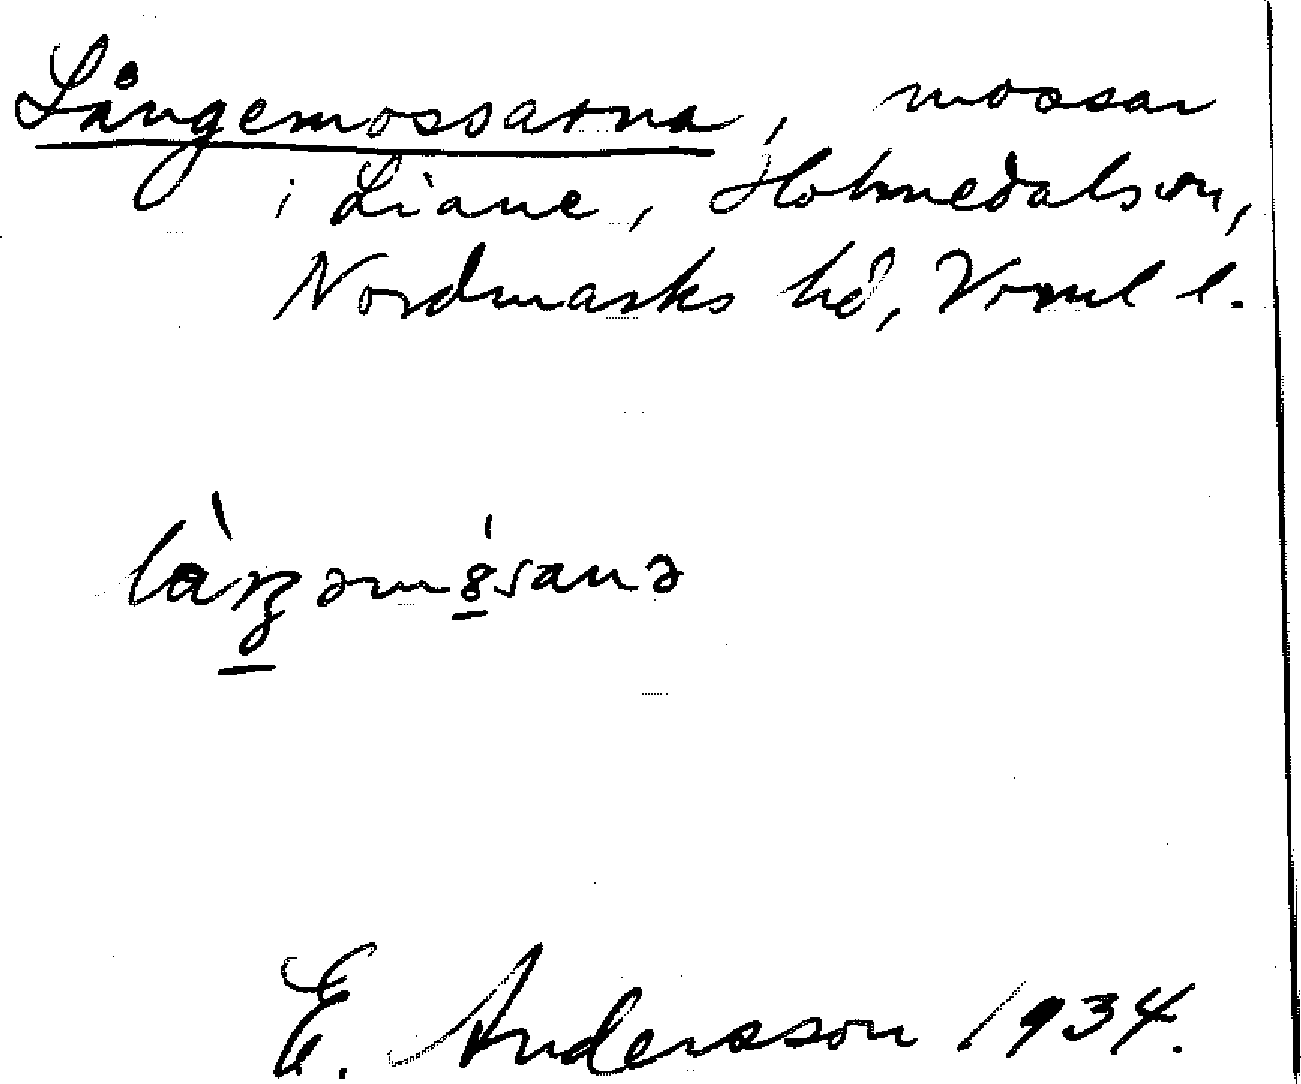 Långemossarna, mossar
i Liane, Holmedals sn,
Nordmarks hd, Vrml l.
E. Andersson 1934.